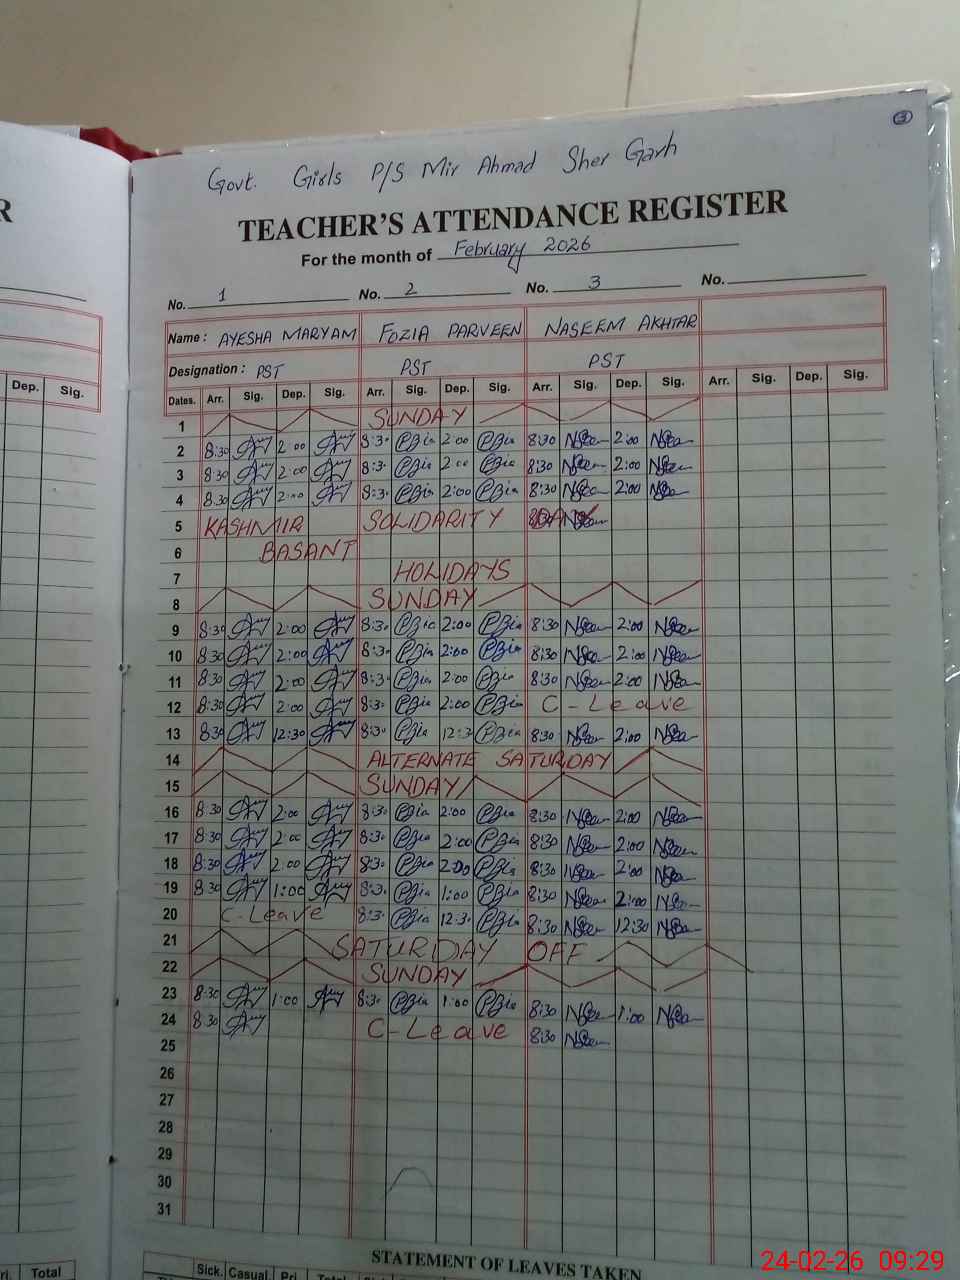 3
Govt. Girls P/S Mir Ahmad Sher Garh
R
TEACHER'S ATTENDANCE REGISTER
For the month of February 2026
No. 1 No. 2 No. 3 No.
Name : AYESHA MARYAM FOZIA PARVEEN NASEEM AKHTAR
Designation : PST PST PST
Dep. Sig.
Dates. Arr. Sig. Dep. Sig. Arr. Sig. Dep. Sig. Arr. Sig. Dep. Sig. Arr. Sig. Dep. Sig.
1 SUNDAY
2 8:30 2:00 8:30 2:00 8:30 2:00
3 8:30 2:00 8:30 2:00 8:30 2:00
4 8:30 2:00 8:30 2:00 8:30 2:00
5 KASHMIR SOLIDARITY DAY
6 BASANT
7 HOLIDAYS
8 SUNDAY
9 8:30 2:00 8:30 2:00 8:30 2:00
10 8:30 2:00 8:30 2:00 8:30 2:00
11 8:30 2:00 8:30 2:00 8:30 2:00
12 8:30 2:00 8:30 2:00 C-Leave
13 8:30 12:30 8:30 12:30 8:30 2:00
14 ALTERNATE SATURDAY
15 SUNDAY
16 8:30 2:00 8:30 2:00 8:30 2:00
17 8:30 2:00 8:30 2:00 8:30 2:00
18 8:30 2:00 8:30 2:00 8:30 2:00
19 8:30 1:00 8:30 1:00 8:30 2:00
20 C-Leave 8:30 12:30 8:30 12:30
21 SATURDAY OFF
22 SUNDAY
23 8:30 1:00 8:30 1:00 8:30 1:00
24 8:30 C-Leave 8:30
25
26
27
28
29
30
31
STATEMENT OF LEAVES TAKEN
Total
Sick. Casual Pri. Total
24-02-26 09:29